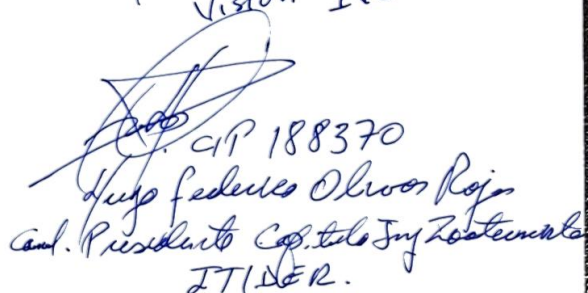 Visión
CIP 188370
Hugo Federico Olivos Rojas
Cand. Presidente Capítulo Ing Zootecnista